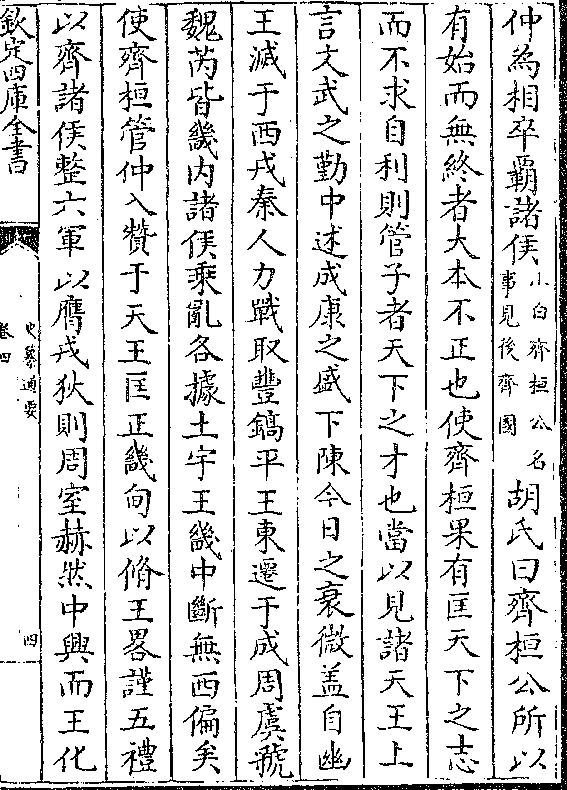 仲為相卒霸諸侯小白齊桓公名事見後齊國胡氏曰齊桓公所以
有始而無終者大本不正也使齊桓果有匡天下之志
而不求自利則管子者天下之才也當以見諸天王上
言文武之勤中述成康之盛下陳今日之衰微盖自幽
王滅于西戎秦人力戰取豐鎬平王東遷于成周虞虢
魏芮皆畿内諸侯乘亂各據土宇王畿中斷無西偏矣
使齊桓管仲入贊于天王匡正畿甸以脩王畧謹五禮
以齊諸侯整六軍以膺戎狄則周室赫然中興而王化
欽定四庫全書
史纂通要
卷四
四